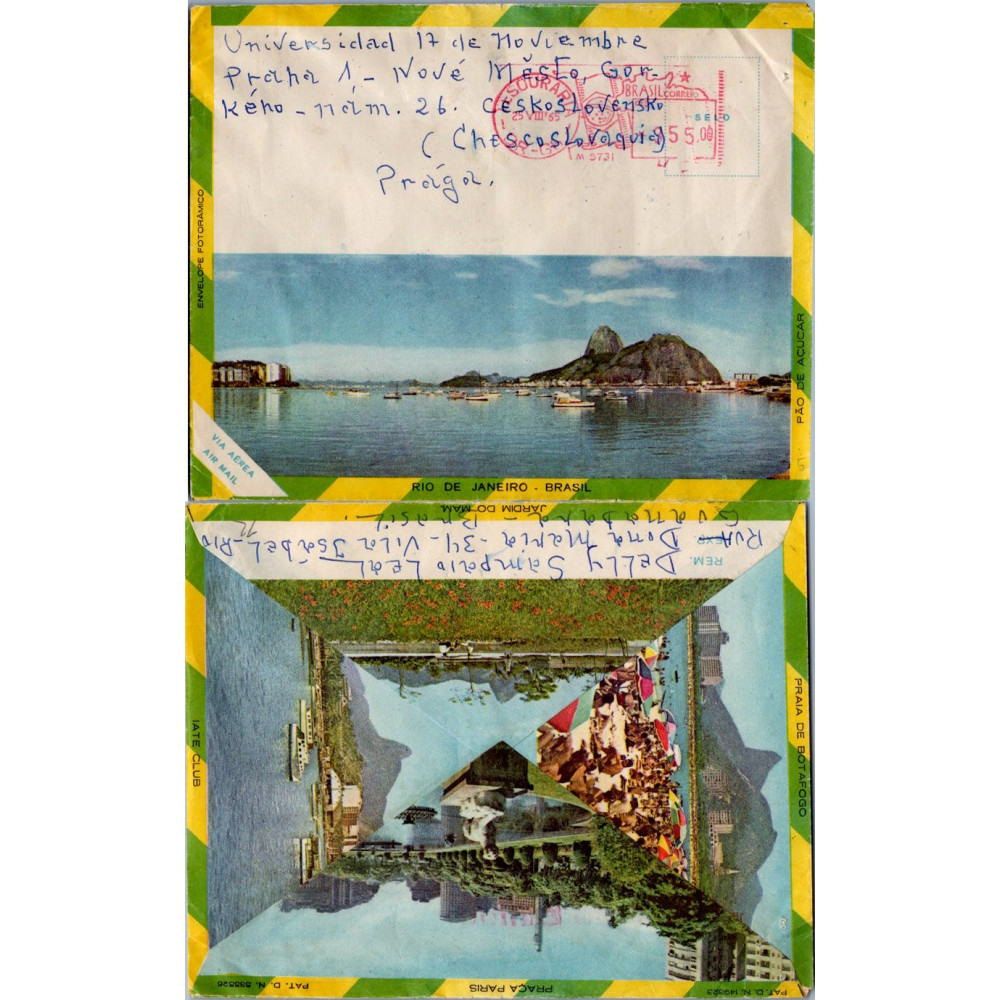 Universidad 17 de Noviembre
Praha 1 - Nové Město, Gor-
kého - nám. 26. Československo
(Checoslovaquia)
Prága.
25 VIII 65
BRASIL CORREIO
SELO
55.00
M 5731
ENVELOPE FOTORÂMICO
PÃO DE AÇUCAR
VIA AÉREA
AIR MAIL
RIO DE JANEIRO - BRASIL
JARDIM DO MAM
REM.
EXP.
Delly Sampaio Leal
Rua Dona Maria - 34 - Vila Isabel - Rio
Guanabara - Brasil.
IATE CLUB
PRAIA DE BOTAFOGO
PRAÇA PARIS
PAT. D. N. 533526
PAT. D. N. 149323